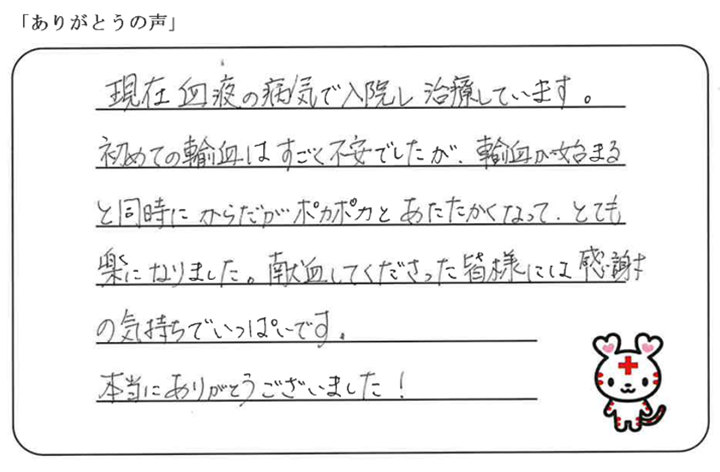 「ありがとうの声」
現在血液の病気で入院し治療しています。
初めての輸血はすごく不安でしたが、輸血が始まる
と同時にからだがポカポカとあたたかくなって、とても
楽になりました。献血してくださった皆様には感謝
の気持ちでいっぱいです。
本当にありがとうございました!